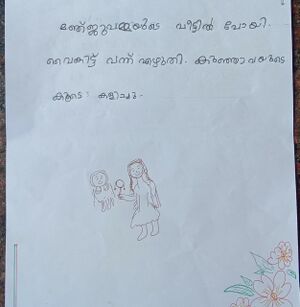 മഞ്ജുവമ്മയുടെ വീട്ടിൽ പോയി.
വൈകിട്ട് വന്ന് എഴുതി. കുഞ്ഞാവയുടെ
കൂടെ കളിച്ചു.